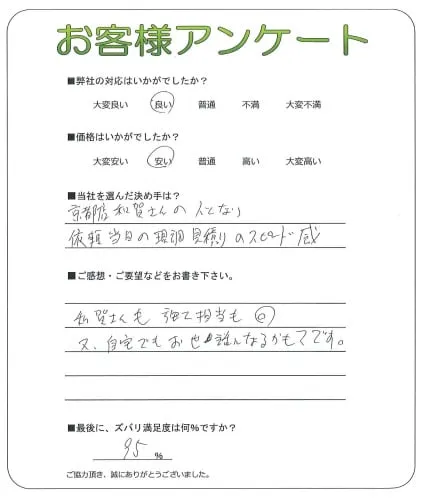 お客様アンケート
■弊社の対応はいかがでしたか?
大変良い 良い 普通 不満 大変不満
■価格はいかがでしたか?
大変安い 安い 普通 高い 大変高い
■当社を選んだ決め手は?
京都店 和賀さんの人となり
依頼当日の現調見積りのスピード感
■ご感想・ご要望などをお書き下さい。
和賀さんも 施工担当も ◎
又、自宅でもお世話になるかもです。
■最後に、ズバリ満足度は何%ですか?
95 %
ご協力頂き、誠にありがとうございました。